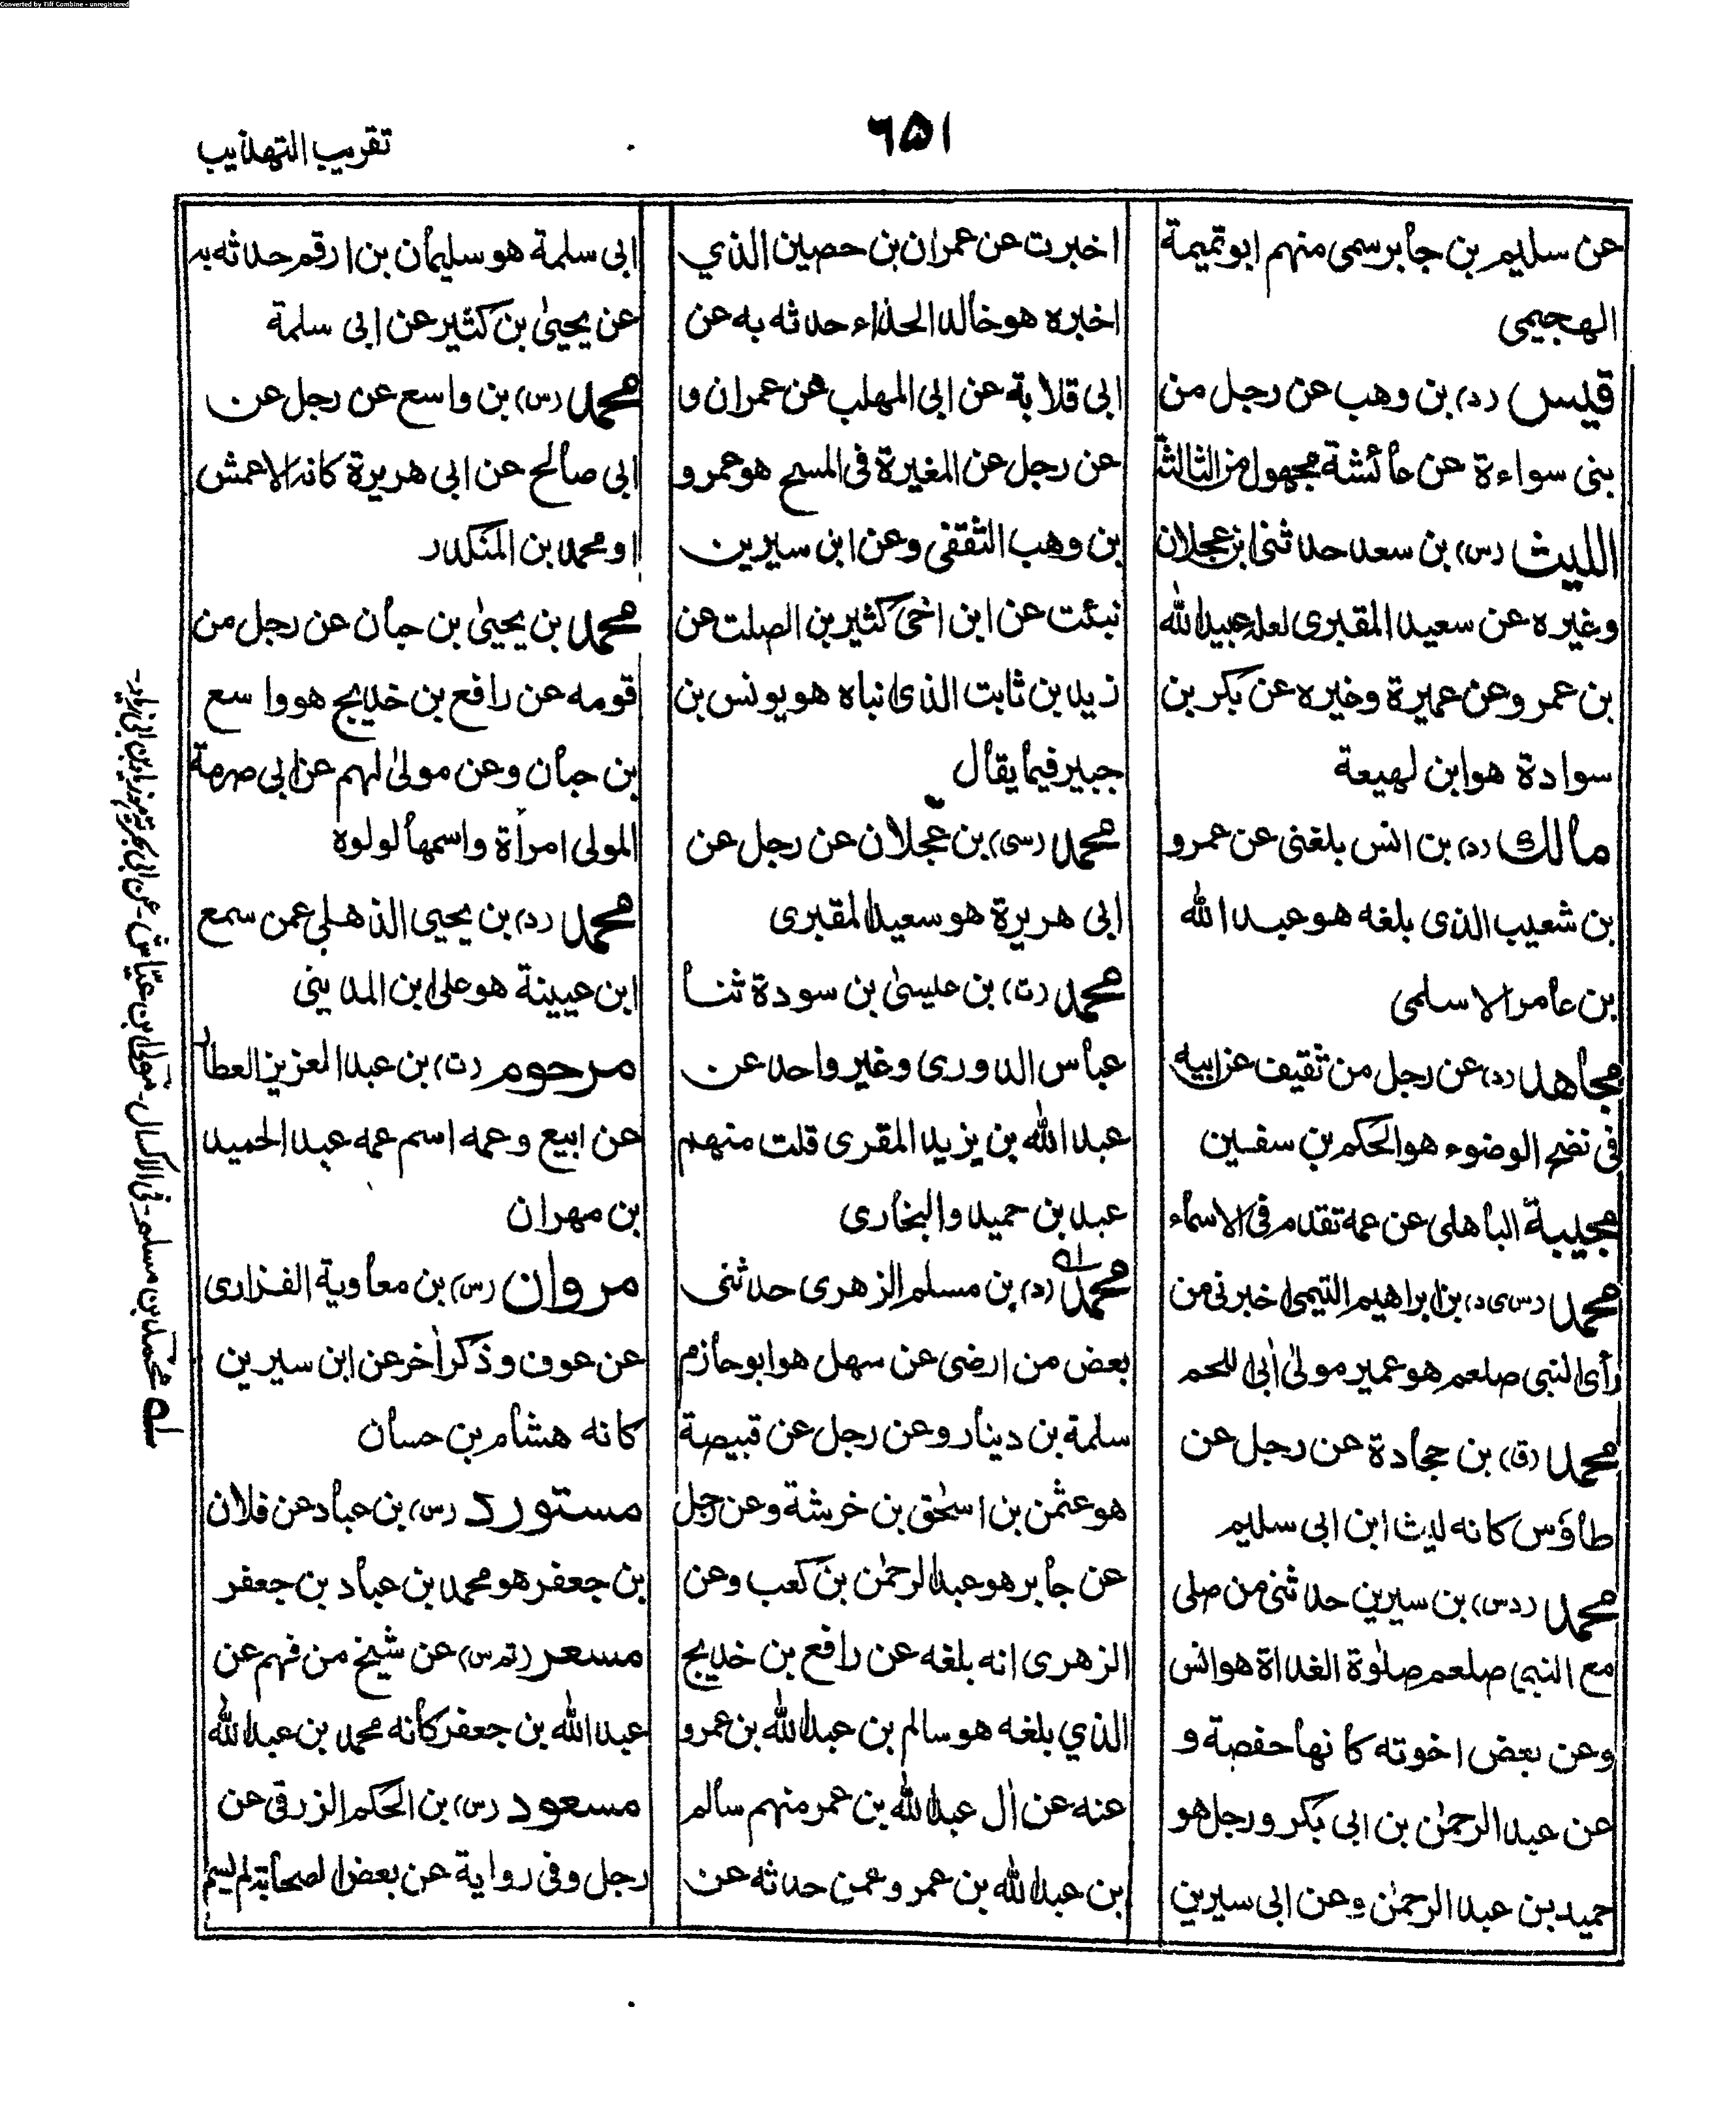 Converted by Tiff Combine - unregistered
٦٥١
تقريب التهذيب
عن سليم بن جابر سمى منهم ابو تميمة
الهجيمى
قيس (د) بن وهب عن رجل من
بنى سواءة عن عائشة مجهول من الثالثة
الليث (س) بن سعد حدثنى ابن عجلان
وغيره عن سعيد المقبرى لعله عبيد الله
بن عمر وعن عميرة وغيره عن بكر بن
سوادة هو ابن لهيعة
مالك (د) بن انس بلغنى عن عمرو
بن شعيب الذى بلغه هو عبد الله
بن عامر الاسلمى
مجاهد (د) عن رجل من ثقيف عن ابيه
فى نضح الوضوء هو الحكم بن سفين
مجيبة الباهلى عن عمه تقدم فى الاسماء
محمد (س ى د) بن ابراهيم التيمى اخبرنى من
رأى النبى صلعم هو عمير مولى أبى اللحم
محمد (ق) بن جحادة عن رجل عن
طاؤس كانه ليث ابن ابى سليم
محمد (د س) بن سيرين حدثنى من صلى
مع النبى صلعم صلوة الغداة هو انس
وعن بعض اخوته كانها حفصة و
عن عبد الرحمٰن بن ابى بكر ورجل هو
حميد بن عبد الرحمٰن وعن ابى سيرين
اخبرت عن عمران بن حصين الذي
اخبره هو خالد الحذاء حدثه به عن
ابى قلابة عن ابى المهلب عن عمران و
عن رجل عن المغيرة فى المسح هو عمرو
بن وهب الثقفى وعن ابن سيرين
نبئت عن ابن اخى كثير بن الصلت عن
زيد بن ثابت الذى انباه هو يونس بن
جبير فيما يقال
محمد (سى) بن عجلان عن رجل عن
ابى هريرة هو سعيد المقبرى
محمد (ت) بن عيسىٰ بن سودة ثنا
عباس الدورى وغير واحد عن
عبد الله بن يزيد المقرى قلت منهم
عبد بن حميد والبخارى
محمد (د) بن مسلم الزهرى حدثنى
بعض من ارضى عن سهل هو ابو حازم
سلمة بن دينار وعن رجل عن قبيصة
هو عثمن بن اسحٰق بن خرشة وعن رجل
عن جابر هو عبد الرحمٰن بن كعب وعن
الزهرى انه بلغه عن رافع بن خديج
الذي بلغه هو سالم بن عبد الله بن عمر و
عنه عن اٰل عبد الله بن عمر منهم سالم
بن عبد الله بن عمر وعمن حدثه عن
ابى سلمة هو سليمان بن ارقم حدثه به
عن يحيىٰ بن كثير عن ابى سلمة
محمد (س) بن واسع عن رجل عن
ابى صالح عن ابى هريرة كانه الاعمش
او محمد بن المنكدر
محمد بن يحيىٰ بن حبان عن رجل من
قومه عن رافع بن خديج هو واسع
بن حبان وعن مولىٰ لهم عن ابى صرمة
المولى امرأة واسمها لولوه
محمد (د) بن يحيى الذهلي عمن سمع
ابن عيينة هو على ابن المدينى
مرحوم (ت) بن عبد العزيز العطار
عن ابيع وعمه اسم عمه عبد الحميد
بن مهران
مروان (س) بن معاوية الفزارى
عن عوف وذكر اٰخر عن ابن سيرين
كانه هشام بن حسان
مستورد (س) بن عباد عن فلان
بن جعفر هو محمد بن عباد بن جعفر
مسعر (تم س) عن شيخ من فهم عن
عبد الله بن جعفر كأنه محمد بن عبد الله
مسعود (س) بن الحكم الزرقى عن
رجل وفى رواية عن بعض الصحابة لم يسم
محمد بن مسلم - فى الاكمال - مولى ابن عيّاش - عن ابى بحرية بن ابى زياد -